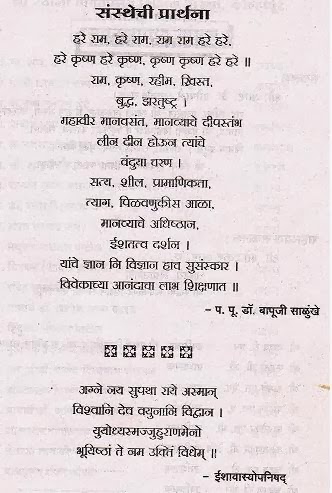 संस्थेची प्रार्थना
हरे राम, हरे राम, राम राम हरे हरे,
हरे कृष्ण हरे कृष्ण, कृष्ण कृष्ण हरे हरे ॥
राम, कृष्ण, रहीम, ख्रिस्त,
बुद्ध, झरतुष्ट्र ।
महावीर मानवसंत, मानव्याचे दीपस्तंभ
लीन दीन होऊन त्यांचे
वंदुया चरण ।
सत्य, शील, प्रामाणिकता,
त्याग, पिळवणुकीस आळा,
मानव्याचे अधिष्ठान,
ईशतत्व दर्शन ।
यांचे ज्ञान नि विज्ञान हाव सुसंस्कार ।
विवेकाच्या आनंदाचा लाभ शिक्षणात ॥
- प. पू. डॉ. बापूजी साळुंखे
अग्ने जय सुपथा राये अस्मान्
विश्वानि देव वयुनानि विद्वान ।
युयोध्यस्मज्जुहुराणमेनो
भूयिष्ठां ते नम उक्तिं विधेम् ॥
- ईशावास्योपनिषद्